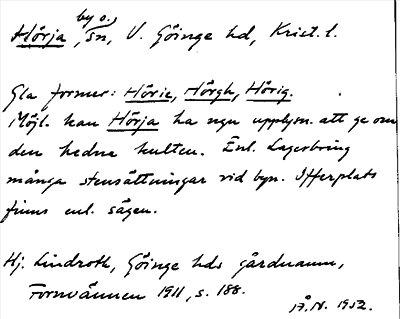 by o.
Hörja, sn, V. Göinge hd, Krist. l.
Gla former: Hörie, Hörgh, Hörig.
Möjl. kan Hörja ha ngn upplysn. att ge om
den hedna kulten. Enl. Lagerbring
många stensättningar vid byn. Offerplats
finns enl. sägen.
Hj. Lindroth, Göinge hds gårdnamn,
Fornvännen 1911, s. 188.
1952.